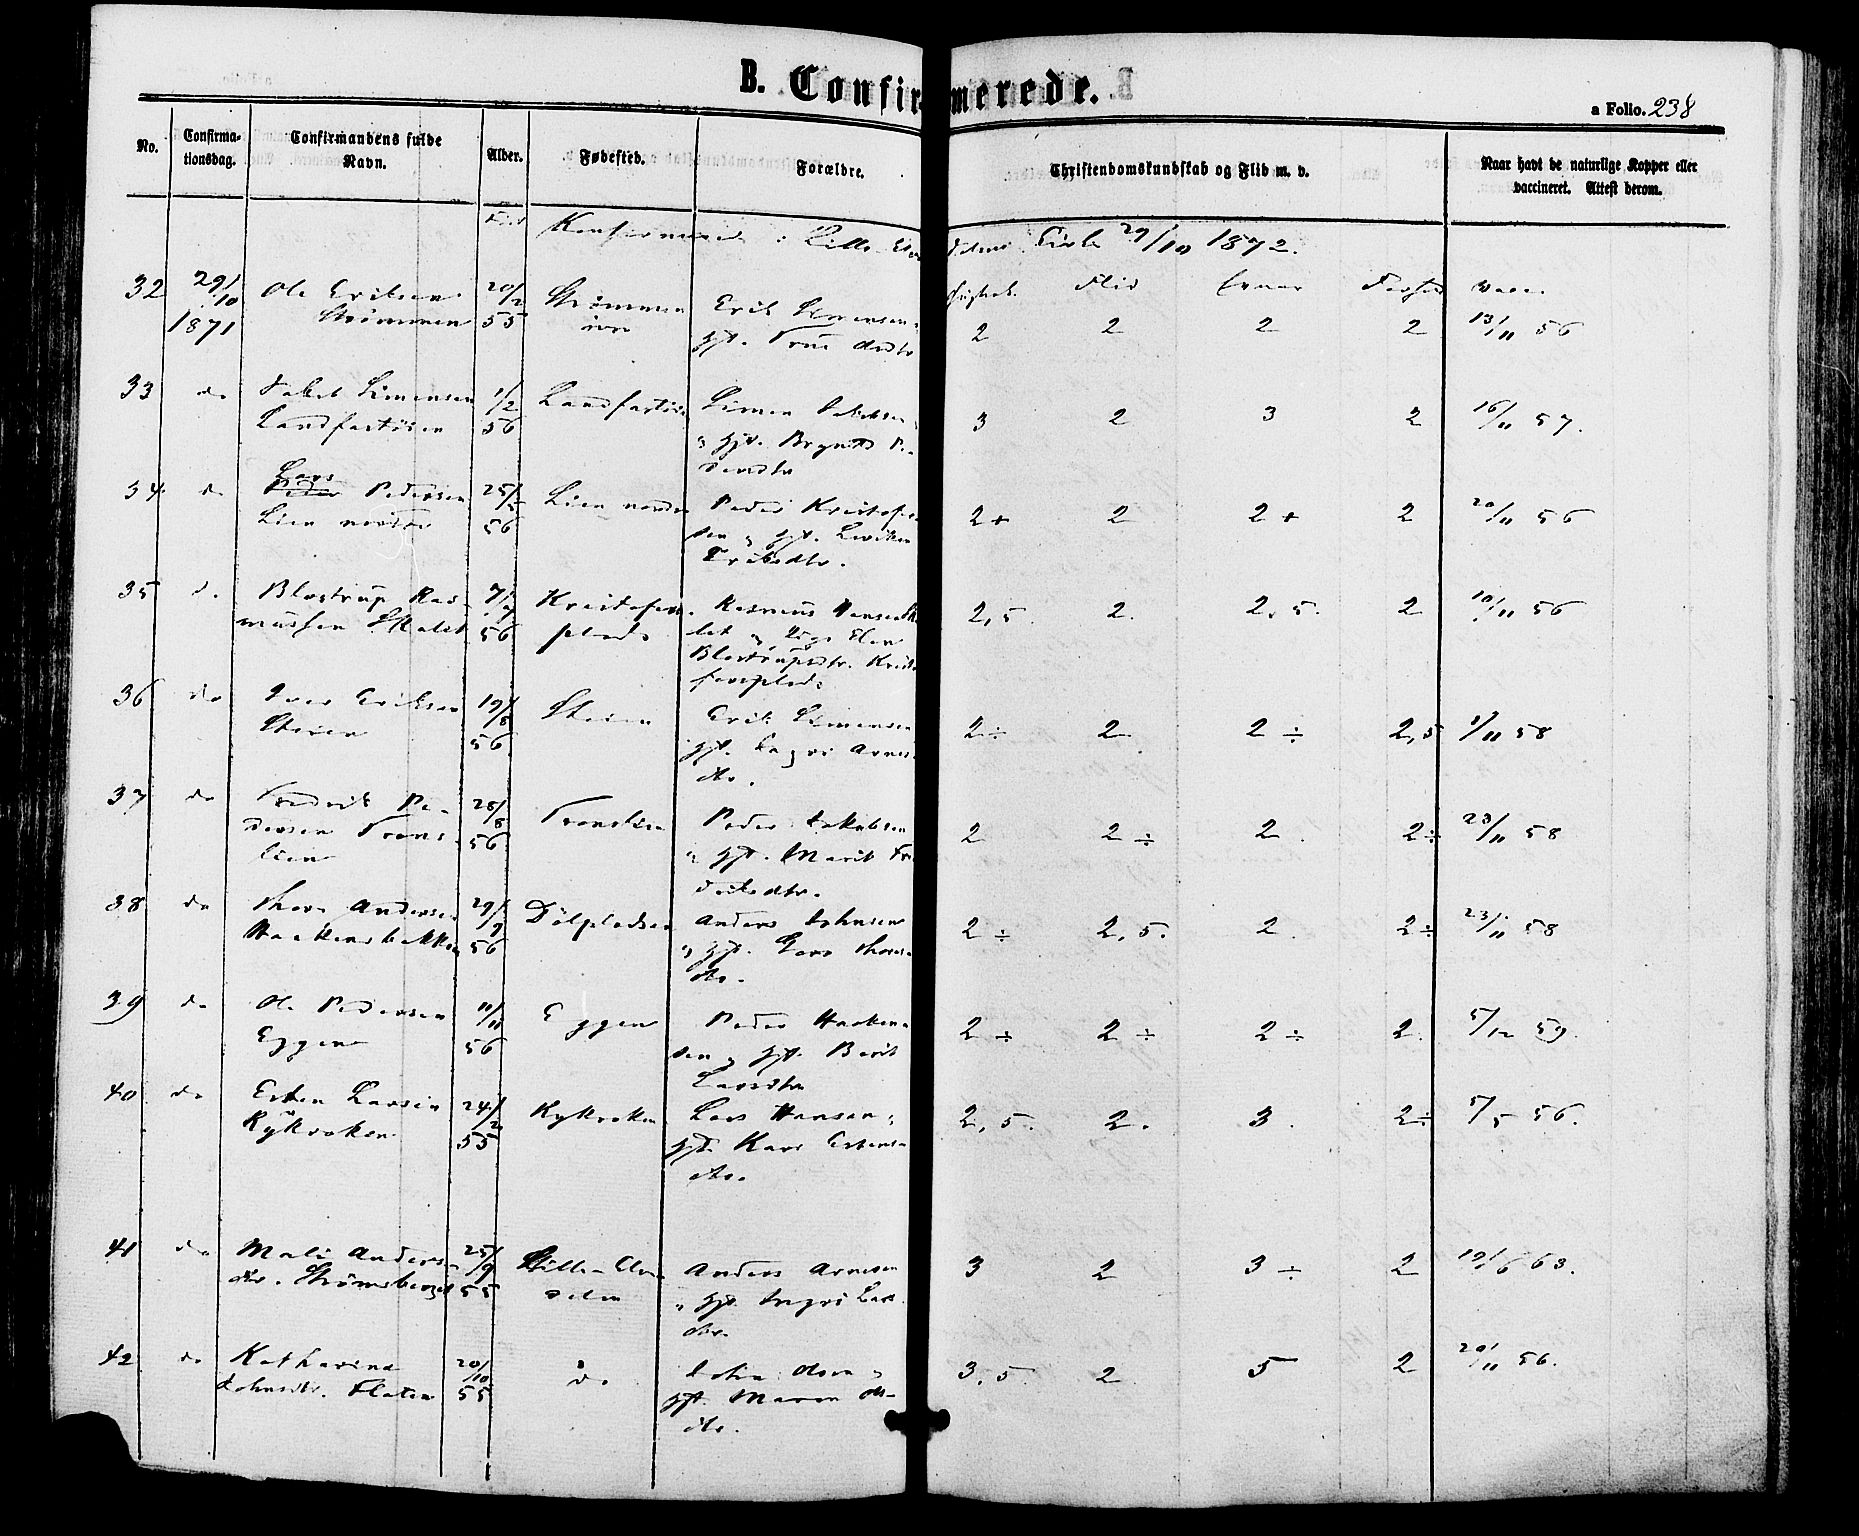 B. Confirmerede.
a Folio. 238
No.
Confirma-
tionsdag.
Confirmandens fulde
Navn.
Alder.
Fødested.
Forældre.
Christendomskundskab og Flid m. v.
Naar havt de naturlige Kopper eller
vaccineret. Attest derom.
Født Konfirmerede i Lille Elvedalens Kirke 29/10 1872.
Flid Evner vacc.
32 29/10 1871 Ole Eriksen
Strømmen 20/2 55 Strømmen
Erik
gft.
2 2 2 2 13/11 56
33 do Simensen
Landfartøien 1/2 56 Landfartøien Simen
gft. Brynild Pe-
dersdtr
3 2 3 2 16/11 57.
34. do Lars
Peder Pedersen
Lien nordre 25/5 56 Lien nordre Peder Kristofer-
sen gft.
Eriksdtr.
2+ 2 2+ 2 20/11 56
35 do Blostrup Ras-
mussen Skalet 7/7 56 Kristofers-
plads Rasmus Hansen
let Pige Elen
Blostrupsdtr. Kristo-
fersplads
2,5. 2. 2,5. 2 10/11 56
36 do Iver Eriksen
Steien 19/8 56 Steien Erik Simensen
gft. Arnes-
dtr.
2÷ 2 2÷ 2,5 1/11 58
37 do Fredrik Pe-
dersen Trons-
lien 28/8 56 Tronslien Peder Jakobsen
gft. Marit Fre-
driksdtr.
2 2÷ 2. 2÷ 23/11 58
38 do Thore Andersen
Haakensbakken 29/9 56 Dølpladsen Anders Johnsen
gft. Thores-
dtr.
2÷ 2,5. 2. 2÷ 23/11 58
39 do Ole Pedersen
Eggen 11/11 56 Eggen Peder Haaken-
sen gft. Berit
Larsdtr
2÷ 2÷ 2÷ 2. 5/12 59.
40 do Esten Larsen
Kykroken 24/2 55 Kykroken Lars Hansen
gft. Kari Estens-
dtr.
2,5. 2. 3. 2÷ 5/5 56.
41 do Mali Anders-
dtr. Strømsberget 25/9 55 Lille-Elve-
dalen Anders Arnesen
gft. Ingri Lars
dtr.
3 2 3÷ 2 19/6 63.
42 do Katharina
Johnsdtr. Floten 20/10 55 do John Olsen
gft. Maren Ols-
dtr.
3,5. 2 5 2 29/11 56.